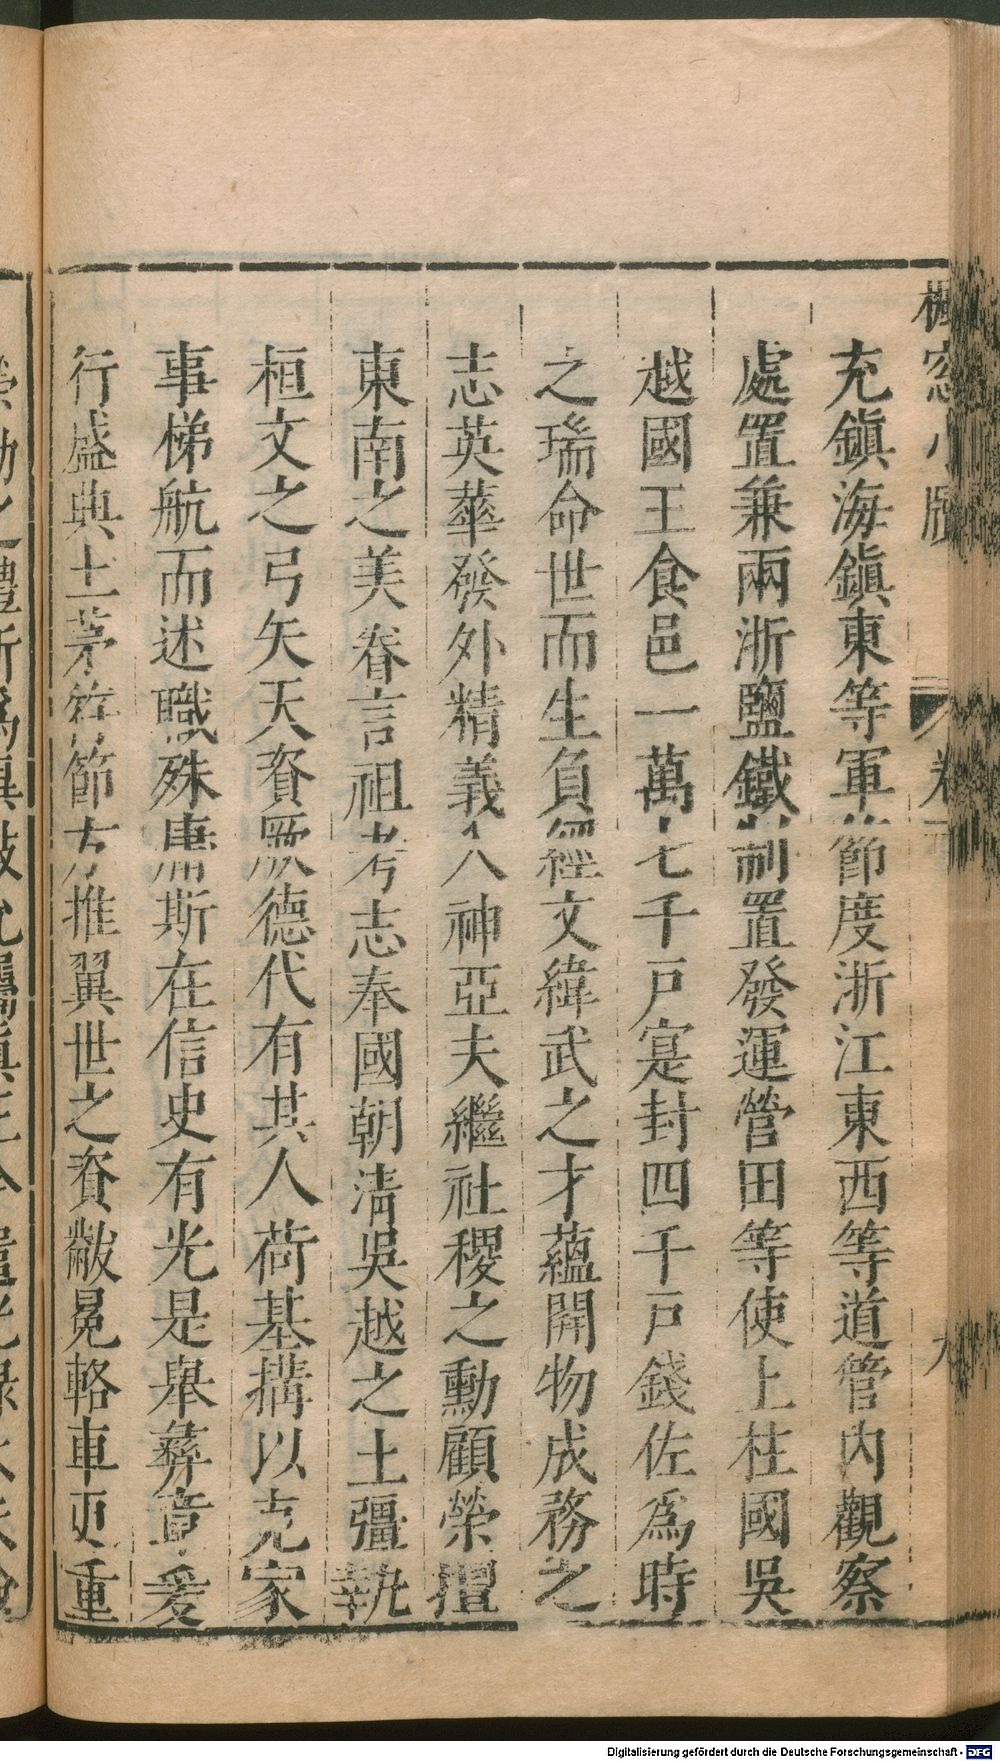 楓窓小牘
卷
九
充鎭海鎭東等軍節度浙江東西等道管內觀察
處置兼兩浙鹽鐵制置發運營田等使上柱國吳
越國王食邑一萬七千戸寔封四千戸錢佐爲時
之瑞命世而生負經文緯武之才蘊開物成務之
志英華發外精義入神亞夫繼社稷之勳顧榮擅
東南之美眷言祖考志奉國朝淸吳越之土彊執
桓文之弓矢天資厥德代有其人荷基搆以克家
事梯航而述職殊庸斯在信史有光是舉彝章爰
行盛典土茅符節方推翼世之資黻冕輅車更重
Digitalisierung gefördert durch die Deutsche Forschungsgemeinschaft - DFG